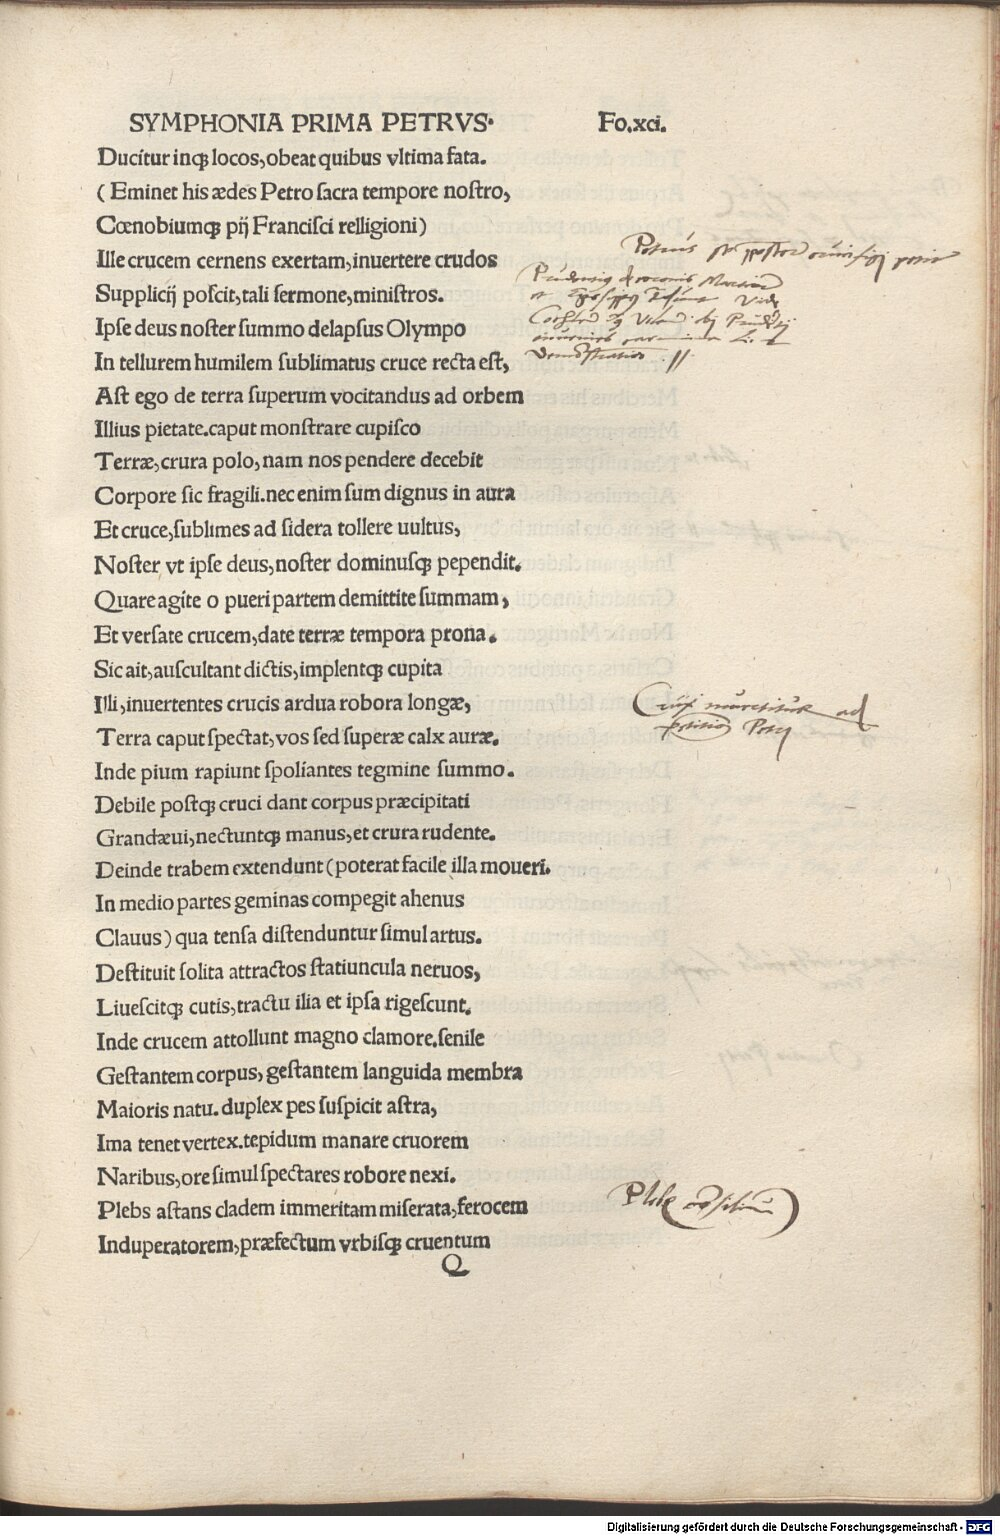 SYMPHONIA PRIMA PETRVS. Fo.xci.
Ducitur inqꝫ locos, obeat quibus vltima fata.
( Eminet his ædes Petro sacra tempore nostro,
Cœnobiumqꝫ pij Francisci relligioni)
Ille crucem cernens exertam, inuertere crudos
Supplicij poscit, tali sermone, ministros.
Ipse deus noster summo delapsus Olympo
In tellurem humilem sublimatus cruce recta est,
Ast ego de terra superum vocitandus ad orbem
Illius pietate. caput monstrare cupisco
Terræ, crura polo, nam nos pendere decebit
Corpore sic fragili. nec enim sum dignus in aura
Et cruce, sublimes ad sidera tollere uultus,
Noster vt ipse deus, noster dominusqꝫ pependit.
Quare agite o pueri partem demittite summam,
Et versate crucem, date terræ tempora prona.
Sic ait, auscultant dictis, implentqꝫ cupita
Illi, inuertentes crucis ardua robora longæ,
Terra caput spectat, vos sed superæ calx auræ.
Inde pium rapiunt spoliantes tegmine summo.
Debile postqꝫ cruci dant corpus præcipitati
Grandæui, nectuntqꝫ manus, et crura rudente.
Deinde trabem extendunt (poterat facile illa moueri.
In medio partes geminas compegit ahenus
Clauus) qua tensa distenduntur simul artus.
Destituit solita attractos statiuncula neruos,
Liuescitqꝫ cutis, tractu ilia et ipsa rigescunt.
Inde crucem attollunt magno clamore. senile
Gestantem corpus, gestantem languida membra
Maioris natu. duplex pes suspicit astra,
Ima tenet vertex. tepidum manare cruorem
Naribus, ore simul spectares robore nexi.
Plebs astans cladem immeritam miserata, ferocem
Induperatorem, præfectum vrbisqꝫ cruentum
Q
Petrus
Vide
Crux invertitur ad
petitionem Petri
Plebs
Digitalisierung gefördert durch die Deutsche Forschungsgemeinschaft - DFG